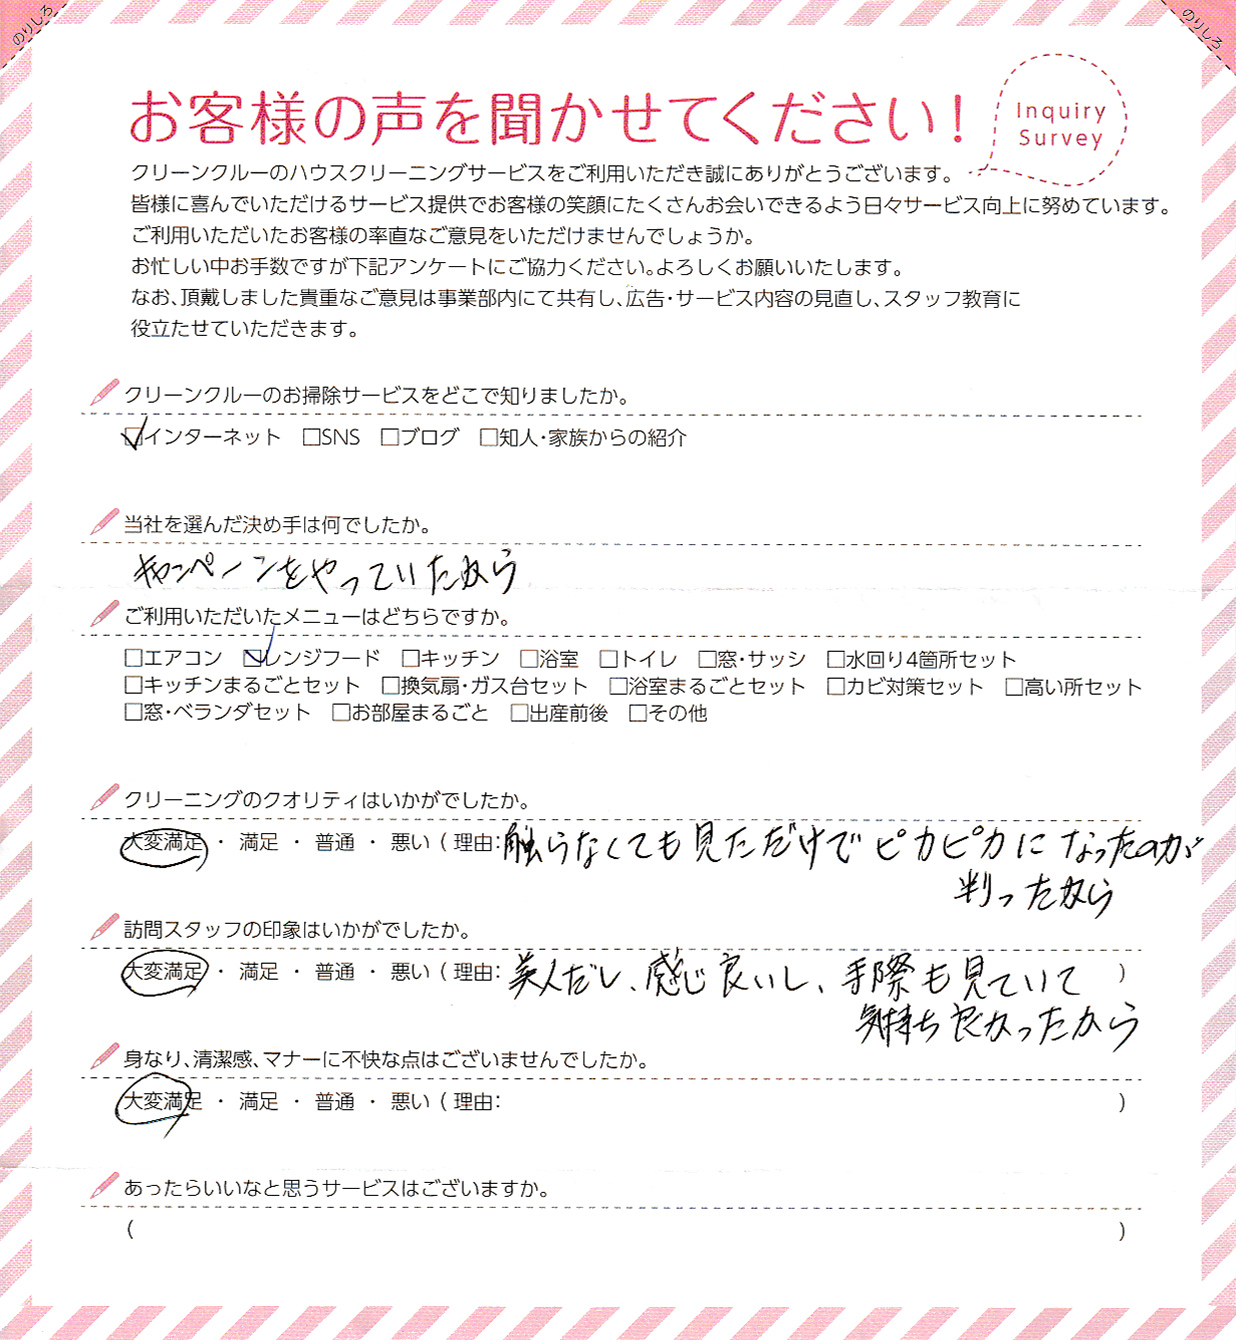 のりしろ
のりしろ
お客様の声を聞かせてください!
Inquiry
Survey
クリーンクルーのハウスクリーニングサービスをご利用いただき誠にありがとうございます。
皆様に喜んでいただけるサービス提供でお客様の笑顔にたくさんお会いできるよう日々サービス向上に努めています。
ご利用いただいたお客様の率直なご意見をいただけませんでしょうか。
お忙しい中お手数ですが下記アンケートにご協力ください。よろしくお願いいたします。
なお、頂戴しました貴重なご意見は事業部内にて共有し、広告・サービス内容の見直し、スタッフ教育に
役立たせていただきます。
クリーンクルーのお掃除サービスをどこで知りましたか。
☑インターネット □SNS □ブログ □知人・家族からの紹介
当社を選んだ決め手は何でしたか。
キャンペーンをやっていたから
ご利用いただいたメニューはどちらですか。
□エアコン ☑レンジフード □キッチン □浴室 □トイレ □窓・サッシ □水回り4箇所セット
□キッチンまるごとセット □換気扇・ガス台セット □浴室まるごとセット □カビ対策セット □高い所セット
□窓・ベランダセット □お部屋まるごと □出産前後 □その他
クリーニングのクオリティはいかがでしたか。
大変満足 ・ 満足 ・ 普通 ・ 悪い ( 理由: 触らなくても見ただけでピカピカになったのが
判ったから
訪問スタッフの印象はいかがでしたか。
大変満足 ・ 満足 ・ 普通 ・ 悪い ( 理由: 美人だし、感じ良いし、手際も見ていて )
気持ち良かったから
身なり、清潔感、マナーに不快な点はございませんでしたか。
大変満足 ・ 満足 ・ 普通 ・ 悪い ( 理由: )
あったらいいなと思うサービスはございますか。
( )